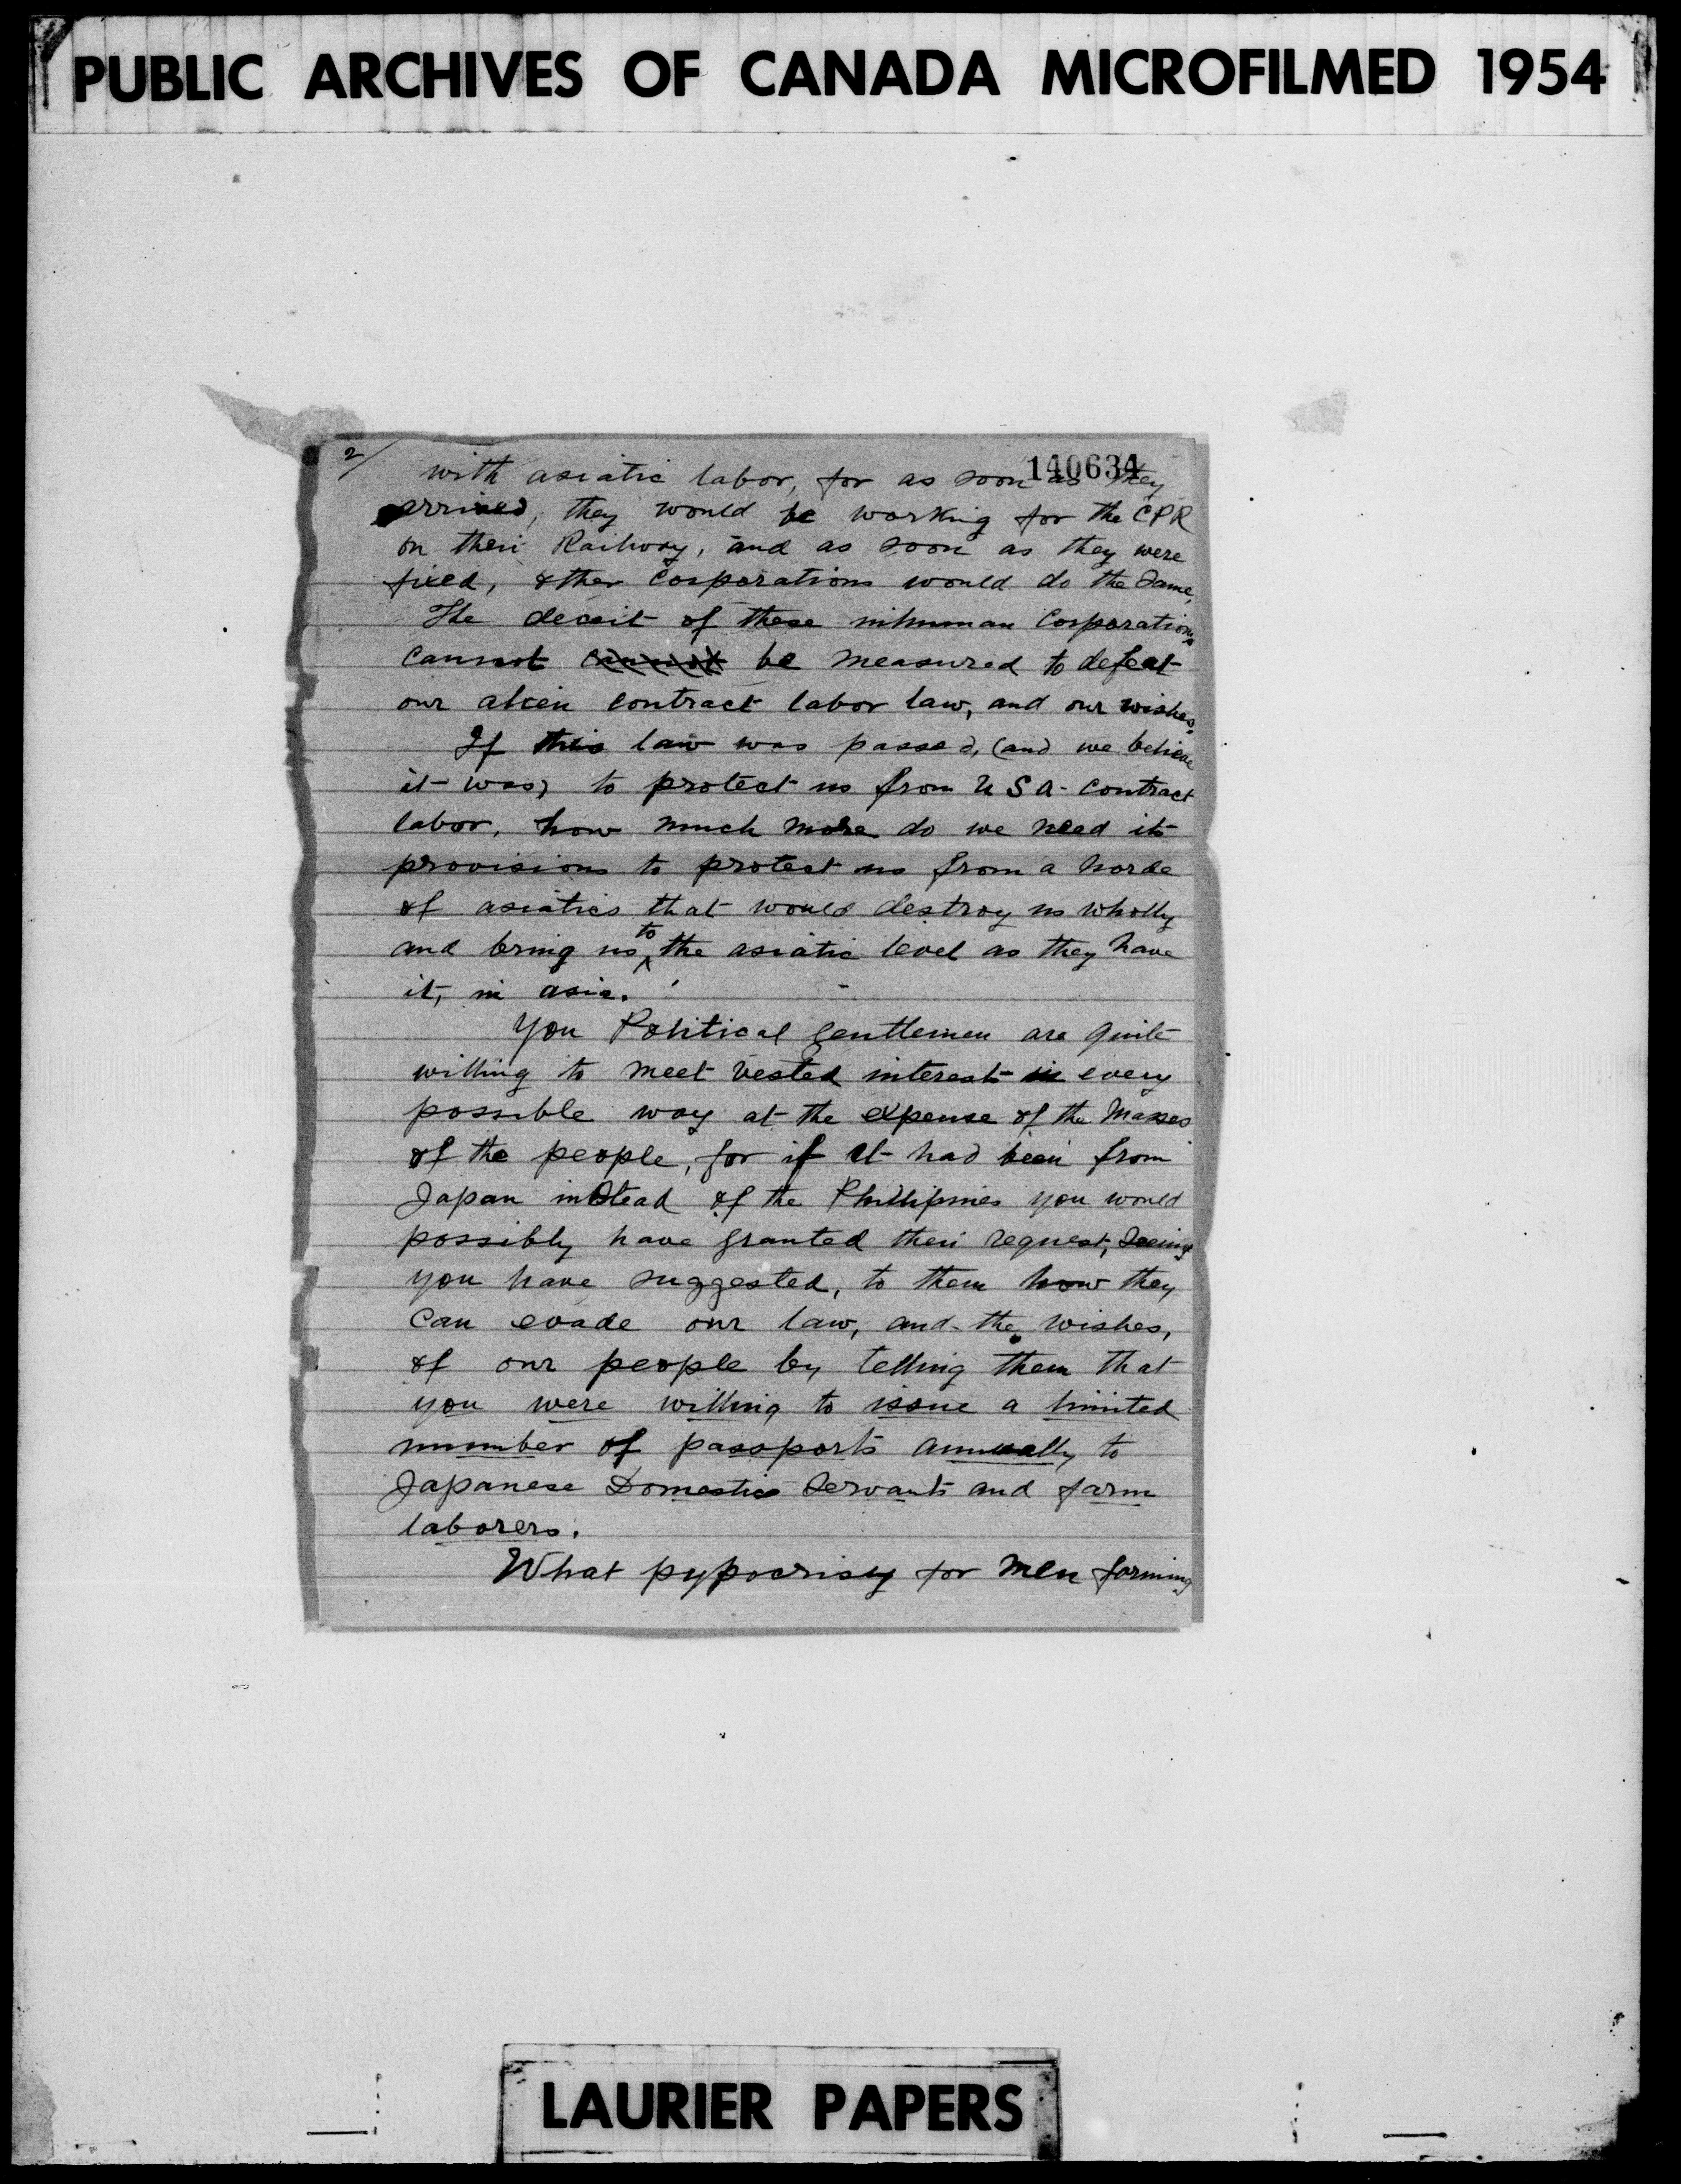 PUBLIC ARCHIVES OF CANADA MICROFILMED 1954
2/
140634
with asiatic labor, for as soon as they
arrived, they would be working for the CPR
on their Railway, and as soon as they were
fixed, other Corporations would do the Same,
The deceit of these inhuman Corporations
cannot cannot be measured to defeat
our alien contract labor law, and our wishes.
If this law was passed, (and we believe
it was) to protect us from U S A - Contract
labor, how much more do we need its
provisions to protect us from a horde
of asiatics that would destroy us wholly
and bring us to the asiatic level as they have
it, in asia.
You Political gentlemen are quite
willing to meet vested interests in every
possible way at the expense of the Masses
of the people, for if it had been from
Japan instead of the Phillipines you would
possibly have granted their request, Seeing
you have suggested, to them how they
Can evade our law, and the wishes,
of our people by telling them that
you were willing to issue a limited
number of passports annually to
Japanese Domestic Servants and farm
laborers.
What pypocrisy for Men forming
LAURIER PAPERS